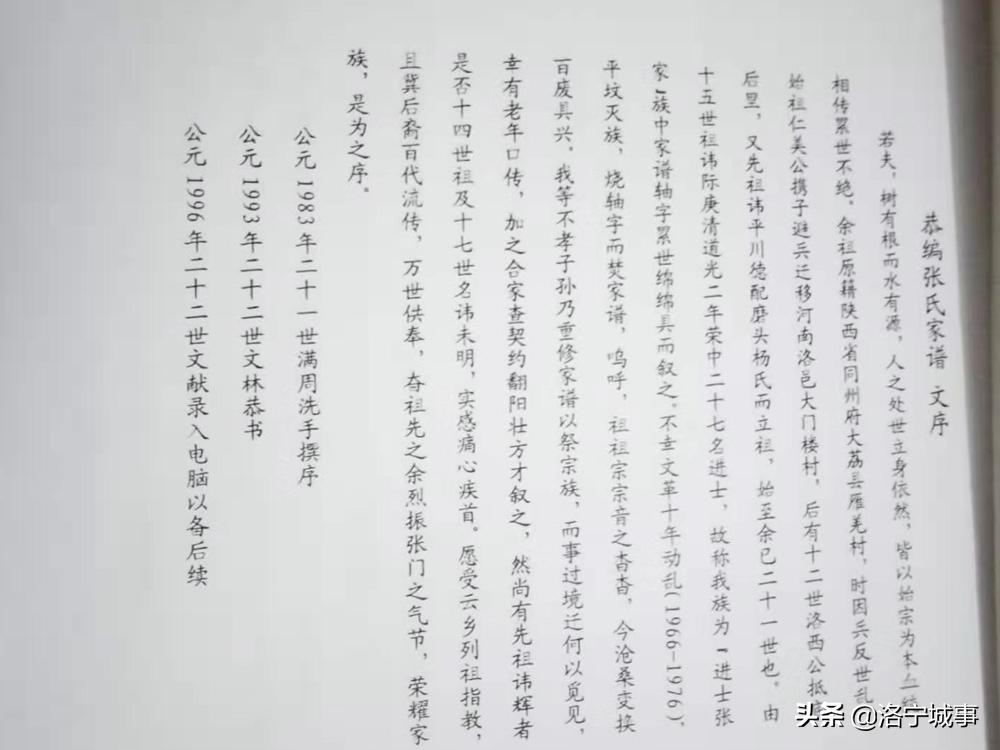 恭编张氏家谱 文序
若夫，树有根而水有源，人之处世立身依然，皆以始宗为本
相传累世不绝。余祖原籍陕西省同州府大荔县雁羌村，时因兵反世乱
始祖仁美公携子避兵迁移河南洛邑大门楼村，后有十二世洛西公抵
后里，又先祖讳平川德配磨头杨氏而立祖，始至余已二十一世也。由
十五世祖讳际庚清道光二年荣中二十七名进士，故称我族为"进士张
家"族中家谱轴字累世绵绵具而叙之。不幸文革十年动乱(1966—1976)，
平坟灭族，烧轴字而焚家谱，呜呼，祖祖宗宗音之杳杳，今沧桑变换
百废具兴，我等不孝子孙乃重修家谱以祭宗族，而事过境迁何以觅见，
幸有老年口传，加之合家查契约翻阳壮方才叙之，然尚有先祖讳辉者
是否十四世祖及十七世名讳未明，实感痛心疾首。愿受云乡列祖指教，
且冀后裔百代流传，万世供奉，夺祖先之余烈振张门之气节，荣耀家
族，是为之序。
公元1983年二十一世满周洗手撰序
公元1993年二十二世文林恭书
公元1996年二十二世文献录入电脑以备后续
头条 @洛宁城事